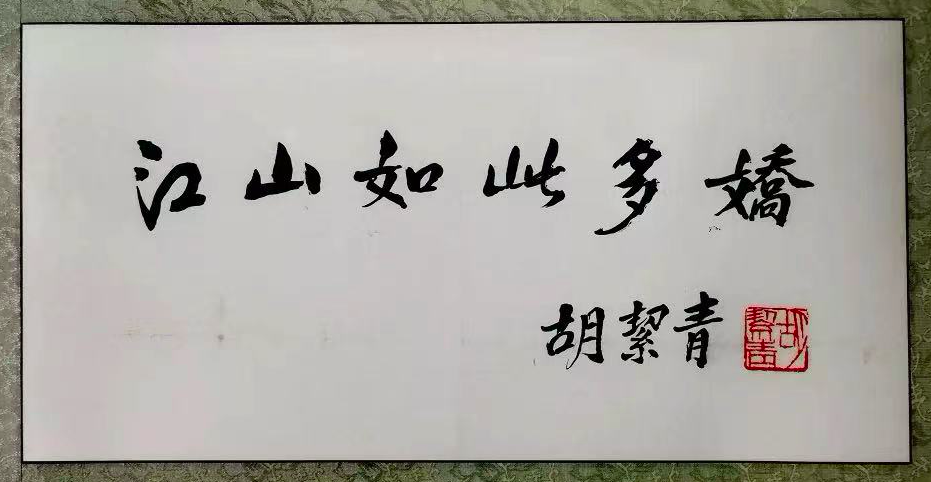 江山如此多嬌
胡絜青
胡絜青